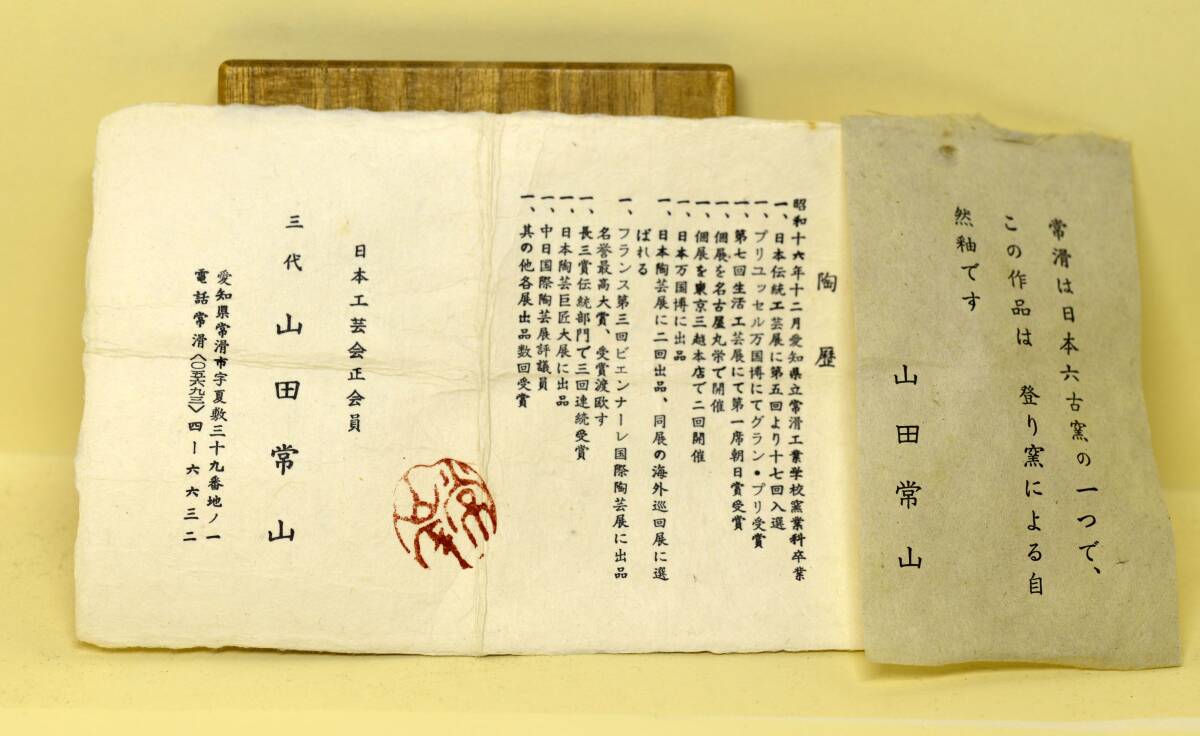 常滑は日本六古窯の一つで、
この作品は　登り窯による自
然釉です
山田常山
陶歴
昭和十六年十二月愛知県立常滑工業学校窯業科卒業
一、日本伝統工芸展に第五回より十七回入選
一、ブリユッセル万国博にてグラン・プリ受賞
一、第七回生活工芸展にて第一席朝日賞受賞
一、個展を名古屋丸栄で開催
一、個展を東京三越本店で二回開催
一、日本万国博に出品
一、日本陶芸展に二回出品、同展の海外巡回展に選
ばれる
一、フランス第三回ビエンナーレ国際陶芸展に出品
名誉最高大賞、受賞渡欧す
一、長三賞伝統部門で三回連続受賞
一、日本陶芸巨匠大展に出品
一、中日国際陶芸展評議員
一、其の他各展出品数回受賞
日本工芸会正会員
三代　山田常山
愛知県常滑市字夏敷三十九番地ノ一
電話常滑〈〇五六九三〉四ー六六三二